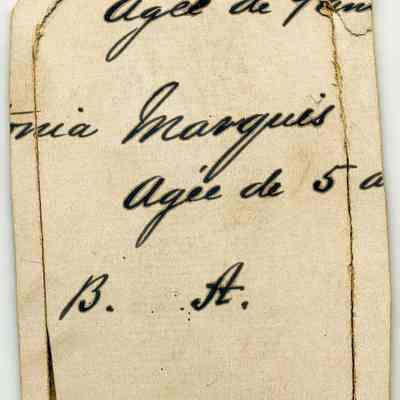 Agée de
onia Marquis
Agée de 5 a
B. A.